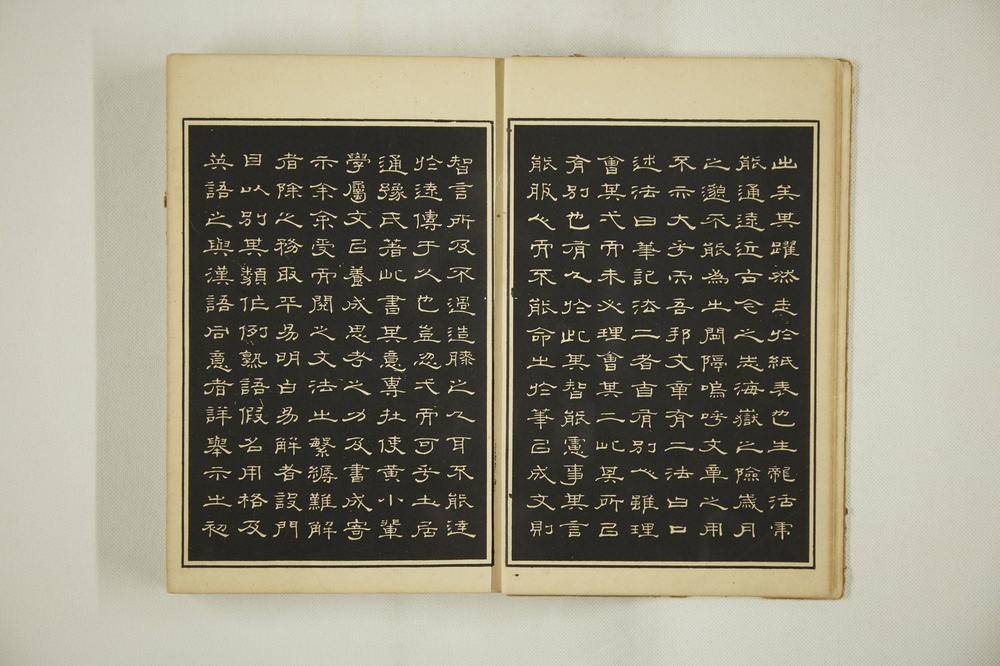 此美其躍然走於紙表也生龍活虎
能通遠近古今之志海嶽之險歲月
之邈不能為之閒隔嗚呼文章之用
不亦大乎而吾邦文章有二法曰口
述法曰筆記法二者直有別心雖理
會其弌而未必理會其二此其所已
有別也有人於此其智能慮事其言
能服心而不能命之於筆已成文則
智言所及不過造膝之人耳不能達
於遠傳于久也豈忽弌而可乎土居
通豫氏著此書其意專在使黃小輩
學屬文已養成思考之力及書成寄
示余余受而閱之文法之繁縟難解
者除之務取平易明白易解者設門
目以別其類作例熟語假名用格及
英語之與漢語同意者詳舉示之初